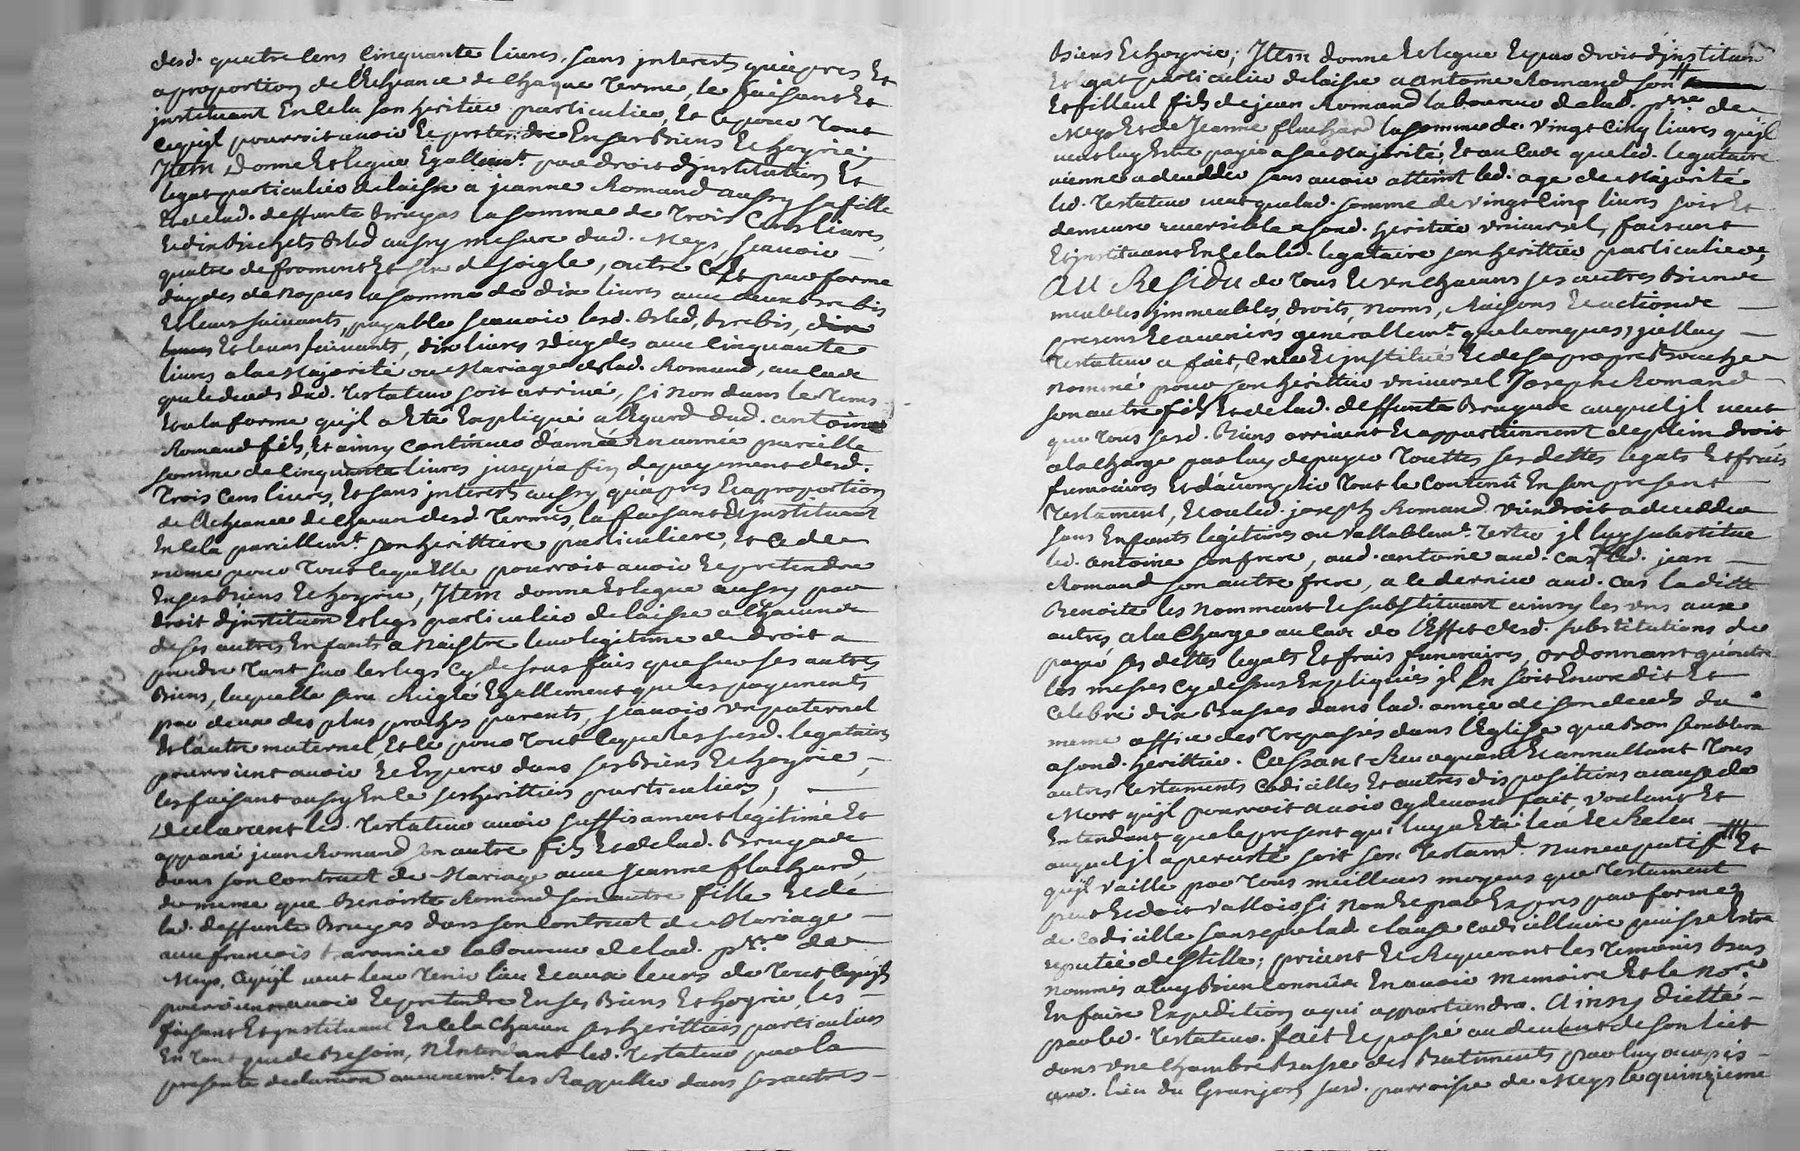 desd. quatre cens cinquante livres, sans interests qu'après Et
a proportion de l'Echeance de chaque terme, le faisant Et
instituant En cela son heritier particulier, Et ce pour tout
ce qu'jl pourroit avoir Et prétendre En ses Biens Et hoyrie;
Jtem donne Et legue Egallemt. par droit d'jnstitution Et
legat particulier delaisse à jeanne Romand aussy sa fille
Et de lad. deffunte Bruyas la somme de trois cens livres,
Et dix Bichets Bled aussy mesure dud. Meys, sçavoir
quatre de froment Et six de soigle, outre Ce Et par forme
d'aydes de nopces la somme de dix livres avec deux Brebis
Et leurs suivants, payable sçavoir lesd. Bled, Brebis,
Et leurs suivants, dix livres d'aydes avec cinquante
livres a la Majorité ou Mariage de lad. Romand, au cas
que le decés dud. testateur soit arrivé, si non dans le tems
Et a la forme qu'jl a Eté Expliqué a l'Egard dud. antoine
Romand fils, Et ainsy continuer d'année En année pareille
somme de cinquante livres jusqu'a fin de payement desd.
trois cens livres, Et sans jnterests aussy qu'après Et a proportion
de l'Echeance de chacun desd. termes, la faisant Et jnstituant
En cela pareillemt. son herittiere particuliere, Et ce de
meme pour tout ce qu'Elle pourroit avoir Et pretendre
En ses Biens Et hoyrie, Jtem donne Et legue aussy par
droit d'jnstitution Et legs particulier delaisse a chacun de
de ses autres Enfants a Naistre leur legitime de droit a
prendre tant sur les legs cy dessous fais que sur ses autres
Biens, laquelle sera Reiglé Egallement que les payements
par deux des plus proches parents, sçavoir un paternel
Et l'autre maternel, Et ce pour tout ce que les susd. legataires
pourroient avoir Et Esperer dans ses Biens Et hoyrie,
les faisant aussy En ce ses herittiers particuliers;
Declarant led. testateur avoir suffisament legitimé Et
appané jean Romand son autre fils Et de lad. Bruyas
dans son contract de Mariage avec jeanne fluchard,
de meme que Benoiste Romand son autre fille Et de
lad. deffunte Bruyas dans son contract de Mariage
avec françois laboureur de lad. prse. de
Meys, ce qu'jl veut leur tenir lieu Et aux leurs de tout ce qu'jls
pourroient avoir Et pretendre En ses Biens Et hoyrie, les
faisant Et jnstituant En cela chacun ses herittiers particuliers
En tant que de Besoin, N'Entendant led. testateur par la
presente declaration aucunemt. les Rappeller dans ses autres
Biens Et hoyrie; Jtem donne Et legue Et par droit d'jnstitution
Et legat particulier delaisse a antoine Romand son //
Et filleul fils de jean Romand laboureur de lad. prse. de
Meys Et de Jeanne fluchard la somme de vingt cinq livres qu'jl
veut luy Estre payée a sa Majorité, Et au cas que led. legataire
vienne a deceder sans avoir atteint led. age de Majorité
led. testateur veut que lad. somme de vingt cinq livres soit Et
demeure reversible a sond. heritier universel, faisant
Et jnstituant En cela led. legataire son herittier particulier;
AU RESIDU de tous Et un chacuns ses autres Biens
meubles jmmeubles, droits, noms, Raisons Et actions
presens Et avenirs generallemt. quelconques, jcelluy
testateur a fait, créé Et jnstitué Et de sa propre Bouche
nommé pour son herittier universel Joseph Romand
son autre fils Et de lad. deffunte Bruyas auquel jl veut
que tous sesd. Biens arrivent Et appartiennent de plein droit,
a la charge par luy de payer touttes ses dettes legats Et frais
funeraires Et d'accomplir tout le contenû En son present
testament, Et ou led. joseph Romand viendroit a deceder
sans Enfants légitimes ou vallablemt. tester jl luy substitue
led. antoine son frere, aud. antoine aud. cas led. jean
Romand son autre frere, a ce dernier aud. cas laditte
Benoite les nommant Et substituant ainsy les uns aux
autres a la charge au cas de l'Effet desd. substitutions de
payer ses dettes legats Et frais funeraires, ordonnant qu'outre
les messes cy dessus Expliquées jl En soit Encor dit Et
celebré dix Basses dans lad. année de son decés du
meme office des trepassés dans l'Eglise que Bon semblera
a sond. herittier. Cassant Revoquant Et annullant tous
autres testaments codicilles Et autres dispositions a cause de
Mort qu'jl pourroit avoir cy devant fait, voulant Et
Entendant que le present qui luy a Eté leu Et Releu
auquel jl a persisté soit son testamt. nuncupatif Et
qu'jl vaille par tous meilleurs moyens que testament
peut Et doit valloir, si non Et par Exprès par forme
de codicille sans que lad. clause codicillaire puisse Estre
reputée de stille; priant Et Requerant les témoins Bas
nommés a luy Bien connûs En avoir memoire Et le Nore.
En faire Expedition a qui appartiendra. Ainsy dicté
par led. testateur. fait Et passé au devant de son lict
dans une chambre Basse des Batiments par luy occupés
aud. lieu du Granjon susd. parroisse de Meys le quinzieme